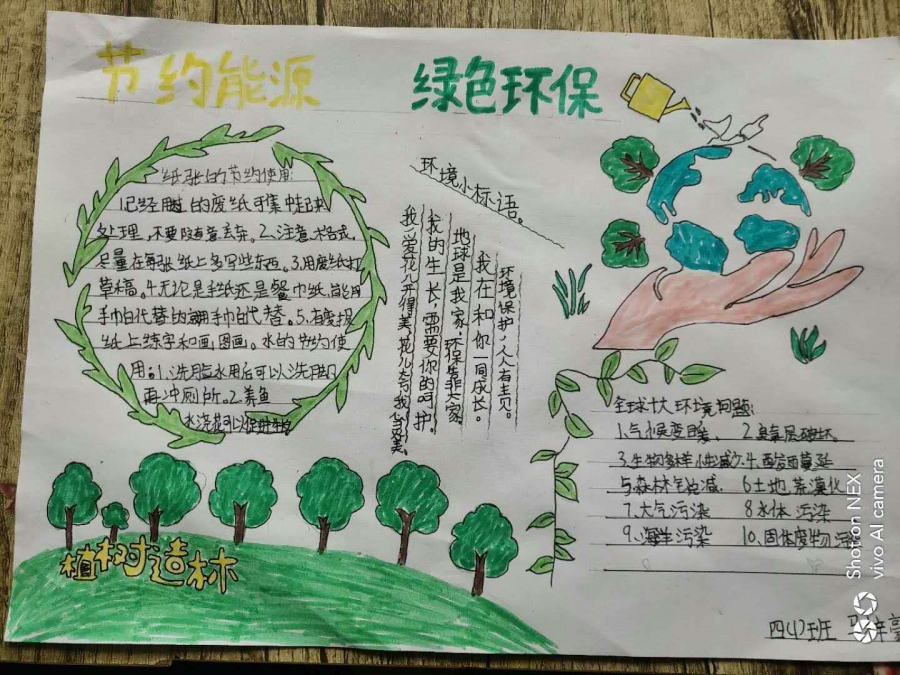 节约能源
绿色环保
纸张的节约使用
1.已经用过的废纸可集中起来
处理,不要随意丢弃。2.注意格式,
尽量在每张纸上多写些东西。3.用废纸打
草稿。4.无论是手纸还是餐巾纸,皆用
手帕代替的用手帕代替。5.在废报
纸上练字和画图画。水的节约使
用:1.洗脸水用后可以洗脚,
再冲厕所。2.养鱼
水浇花可以促进生长
植树造林
环境小标语。
环境保护,人人有主见。
我在和你一同成长。
地球是我家,环保靠大家
我的生长,需要你的呵护。
我爱花儿开得美,花儿夸我心灵美。
全球十大环境问题:
1.气候变暖、 2.臭氧层破坏、
3.生物多样性减少 4.酸雨蔓延
与森林锐减. 6土地荒漠化
7.大气污染 8水体污染
9.海洋污染 10.固体废物污
四(1)班
Shot on NEX
vivo AI camera